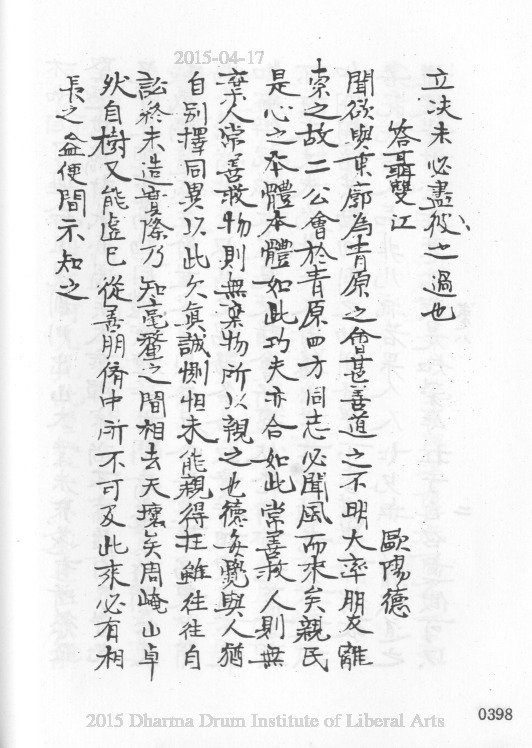 2015-04-17
立决未必盡彼之過也
答聶雙江
歐陽德
聞欲與東廓為青原之會甚善道之不明大率朋友離
索之故二公會於青原四方同志必聞風而來矣親民
是心之本體本體如此功夫亦合如此常善救人則無
棄人常善救物則無棄物所以親之也德每覺與人猶
自別擇同異以此欠真誠惻怛未能親得狂雖往往自
訟終未造實際乃知毫釐之間相去天壤矣周崦山卓
然自樹又能虛已從善朋儕中所不可及此來必有相
長之益便間示知之
0398
2015 Dharma Drum Institute of Liberal Arts